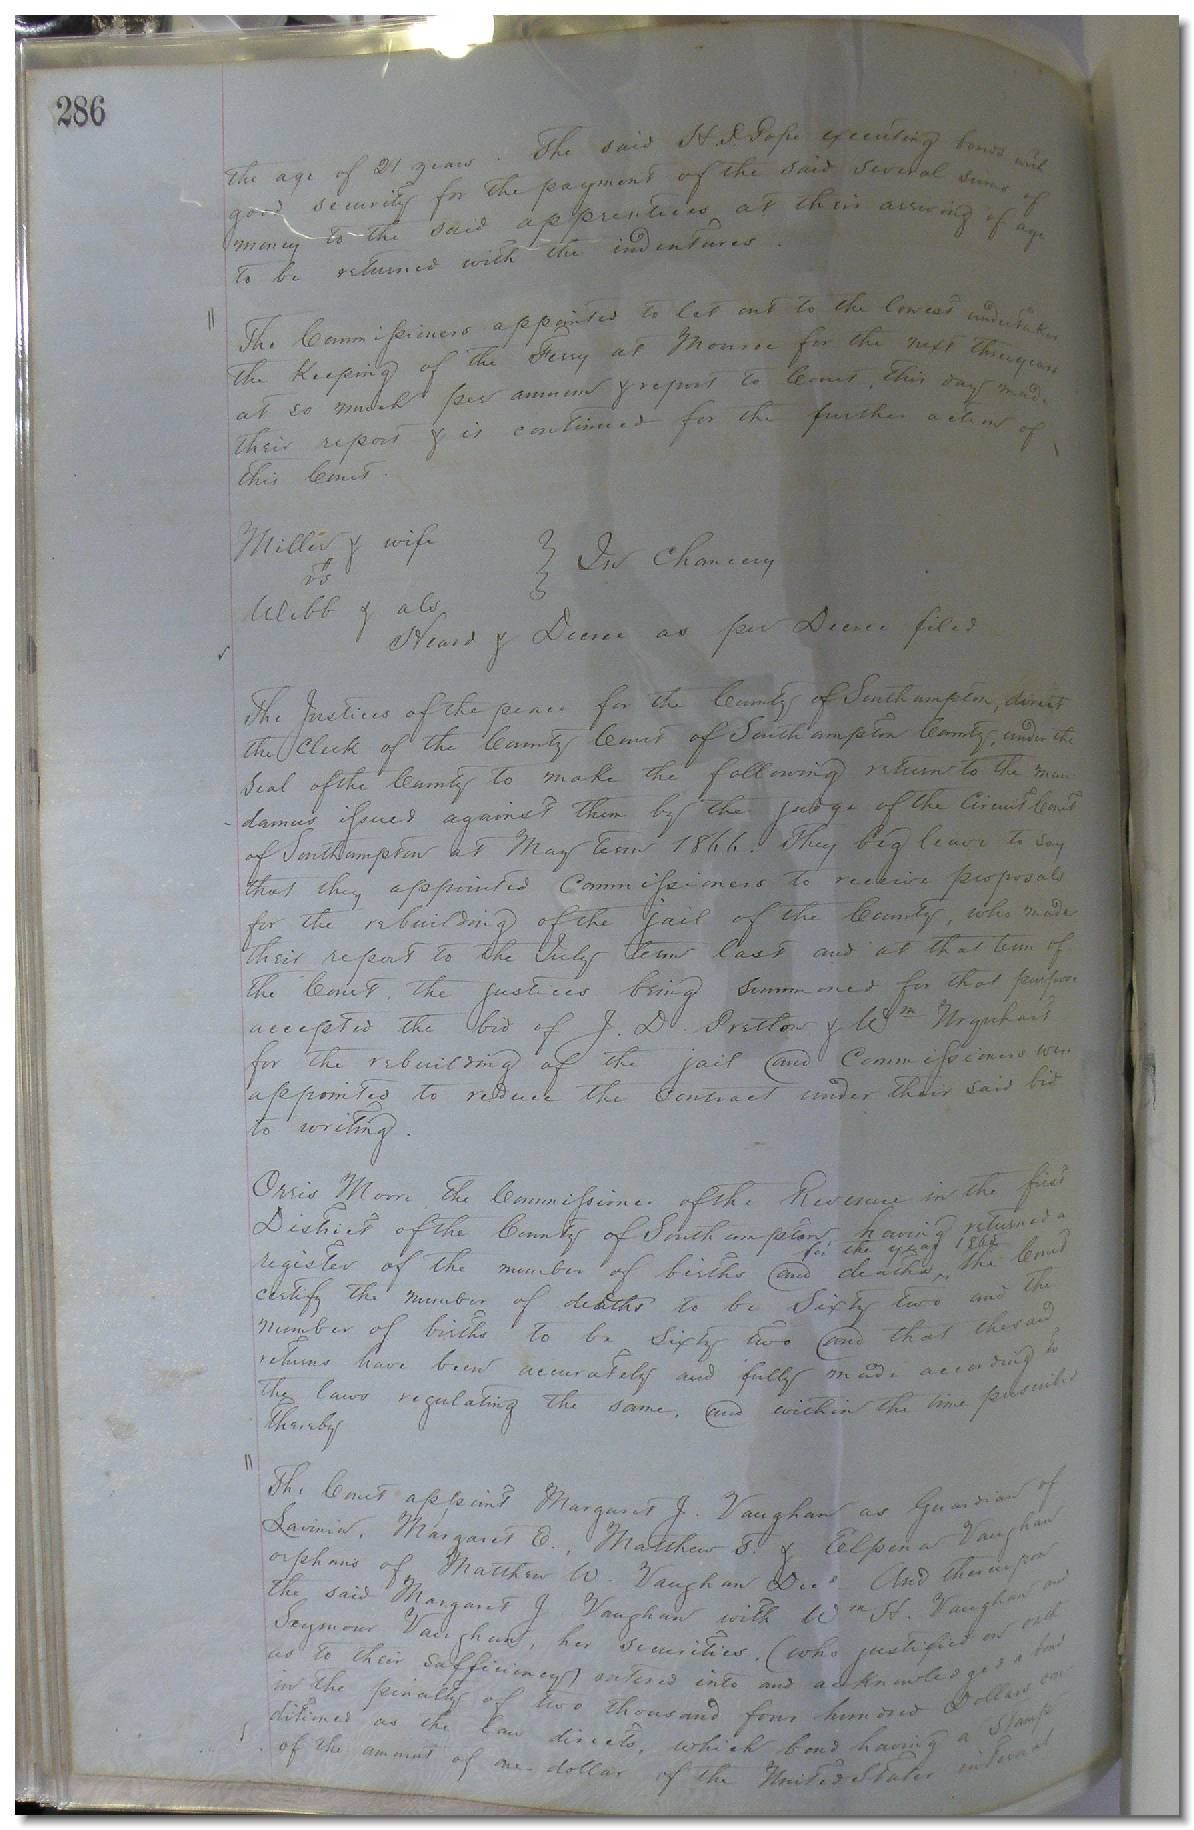 286
the age of 21 years. The said H. D. Pope executing bonds with
good security for the payment of the said several sums of
money to the said apprentices at their arriving of age
to be returned with the indentures.
"
The Commissioners appointed to let out to the lowest undertaker
the Keeping of the Ferry at Monroe for the next three years
at so much per annum & report to Court, this day made
their report & is continued for the further action of
this Court.
Miller & wife
vs } In Chancery
Webb & als
Heard & Decree as per Decree filed
The Justices of the peace for the County of Southampton, direct
the Clerk of the County Court of Southampton County, under the
seal of the County to make the following return to the man
-damus issued against them by the judge of the Circuit Court
of Southampton at May term 1866. They beg leave to say
that they appointed Commissioners to receive proposals
for the rebuilding of the jail of the County, who made
their report to the July term last and at that term of
the Court, the justices being summoned for that purpose
accepted the bid of J. D. Pretlow & Wm Urquhart
for the rebuilding of the jail and Commissioners were
appointed to reduce the contract under their said bid
to writing.
Orris Moore the Commissioner of the Revenue in the first
District of the County of Southampton, having returned a
for the year 1865
register of the number of births and deaths, the Court
certify the number of deaths to be Sixty two and the
number of births to be Sixty two and that the said
returns have been accurately and fully made according to
the laws regulating the same, and within the time prescribed
thereby
"
The Court appoint Margaret J. Vaughan as Guardian of
Lavinia, Margaret E., Matthew T. & Elpena Vaughan
orphans of Matthew W. Vaughan Decd And thereupon
the said Margaret J Vaughan with Wm H. Vaughan and
Seymour Vaughan, her securities, (who justified on oath
as to their sufficiency) entered into and acknowledged a bond
in the penalty of two thousand four hundred Dollars con
ditioned as the law directs, which bond having a Stamp
of the amount of one dollar of the United States internal